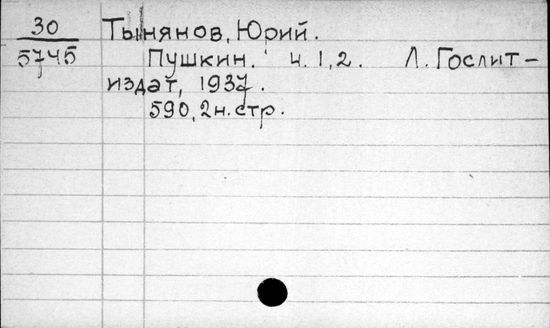 30
5745
Тынянов, Юрий.
Пушкин. ч. 1, 2. Л. Гослит-
издат, 1937.
590, 2 н. стр.